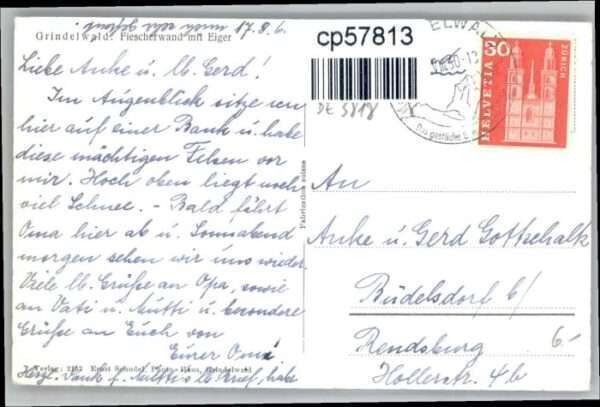 Grindelwald. Fiescherwand mit Eiger
17.8.6.
Liebe Anke u. lb. Gerd!
Im Augenblick sitze ich
hier auf einer Bank u. habe
diese mächtigen Felsen vor
mir. Hoch oben liegt noch
viel Schnee. - Bald fährt
Oma hier ab u. Sonnabend
morgen sehen wir uns wieder.
Viele lb. Grüße an Opa, sowie
an Vati u. Mutti u. besondere
Grüße an Euch von
Eurer Oma
Verlag: Ernst Schudel, Grindelwald
Herzl. Dank f. Mutti's lb. Brief, habe
Fabrication suisse
cp57813
DE 5818
ELWAL
Das gastliche
30
HELVETIA
ZÜRICH
An
Anke u. Gerd Gottschalk
Büdelsdorf b/
Rendsburg
Hollerstr. 4b
6.-